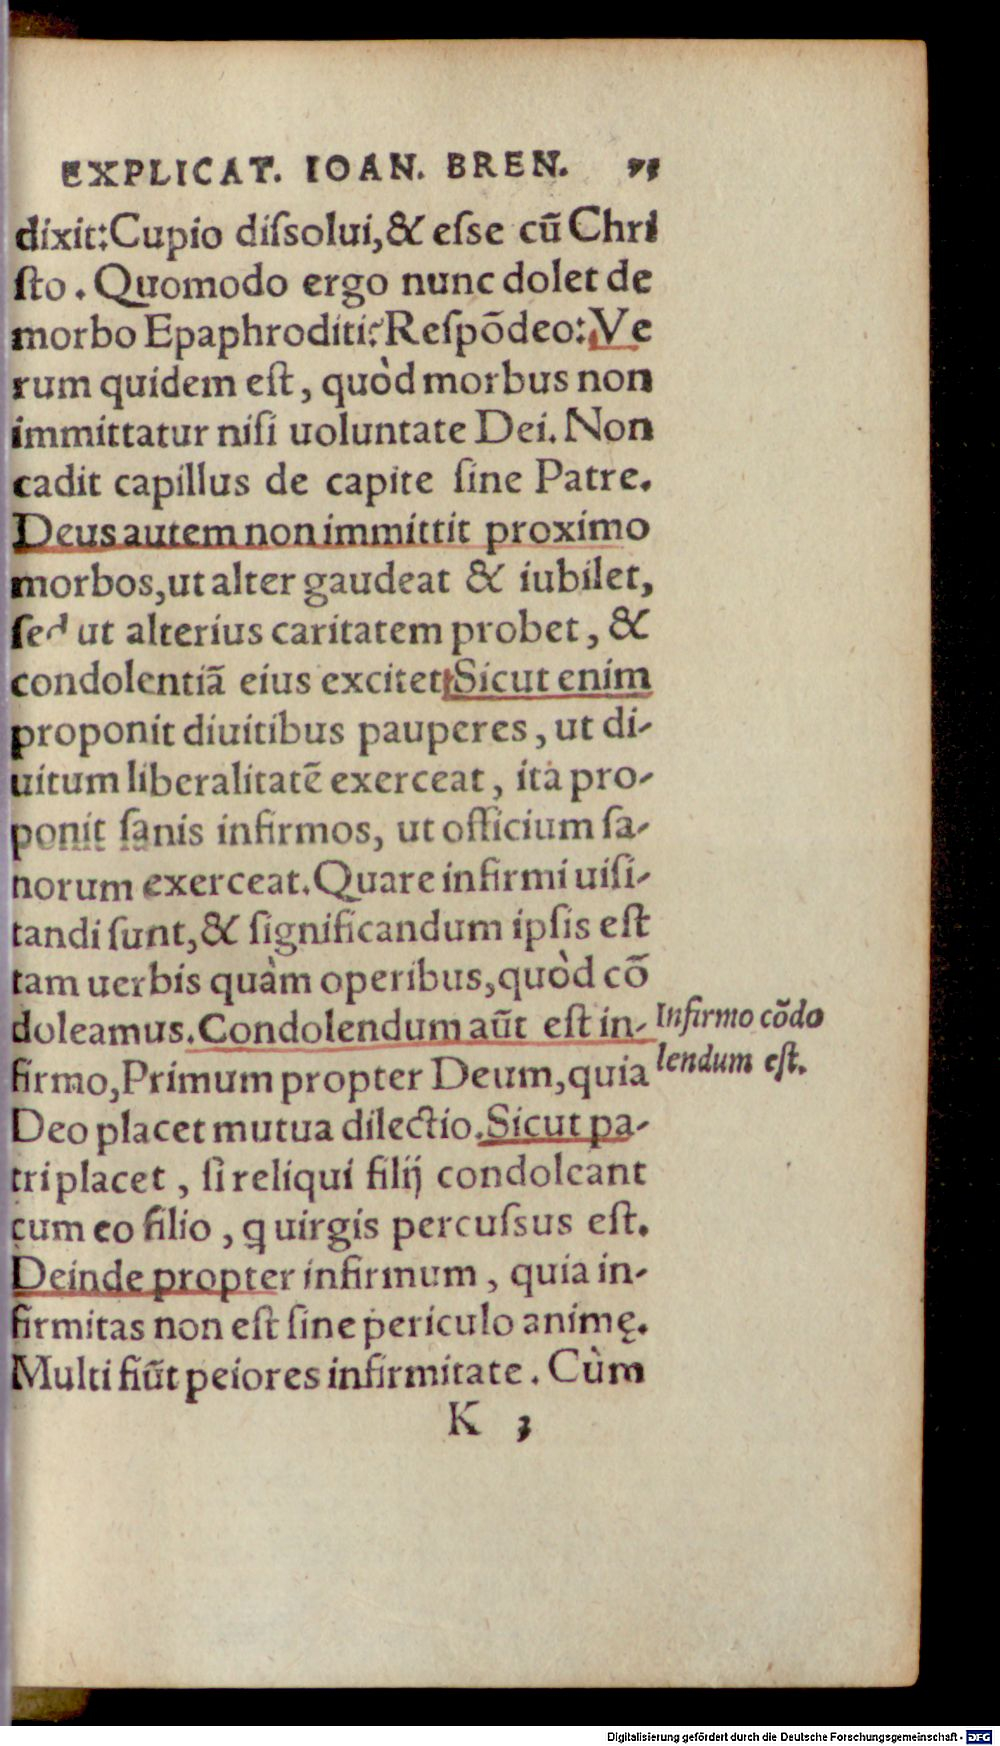 EXPLICAT. IOAN. BREN. 75
dixit: Cupio dissolui, & esse cū Chri
sto. Quomodo ergo nunc dolet de
morbo Epaphroditi? Respōdeo: Ve
rum quidem est, quòd morbus non
immittatur nisi uoluntate Dei. Non
cadit capillus de capite sine Patre.
Deus autem non immittit proximo
morbos, ut alter gaudeat & iubilet,
sed ut alterius caritatem probet, &
condolentiā eius excitet. Sicut enim
proponit diuitibus pauperes, ut di-
uitum liberalitatē exerceat, ita pro-
ponit sanis infirmos, ut officium sa-
norum exerceat. Quare infirmi uisi-
tandi sunt, & significandum ipsis est
tam uerbis quàm operibus, quòd cō
doleamus. Condolendum aūt est in-
firmo, Primum propter Deum, quia
Deo placet mutua dilectio. Sicut pa-
tri placet, si reliqui filij condoleant
cum eo filio, q uirgis percussus est.
Deinde propter infirmum, quia in-
firmitas non est sine periculo animę.
Multi fiūt peiores infirmitate. Cùm
K 3
Infirmo cōdo
lendum est.
Digitalisierung gefördert durch die Deutsche Forschungsgemeinschaft - DFG